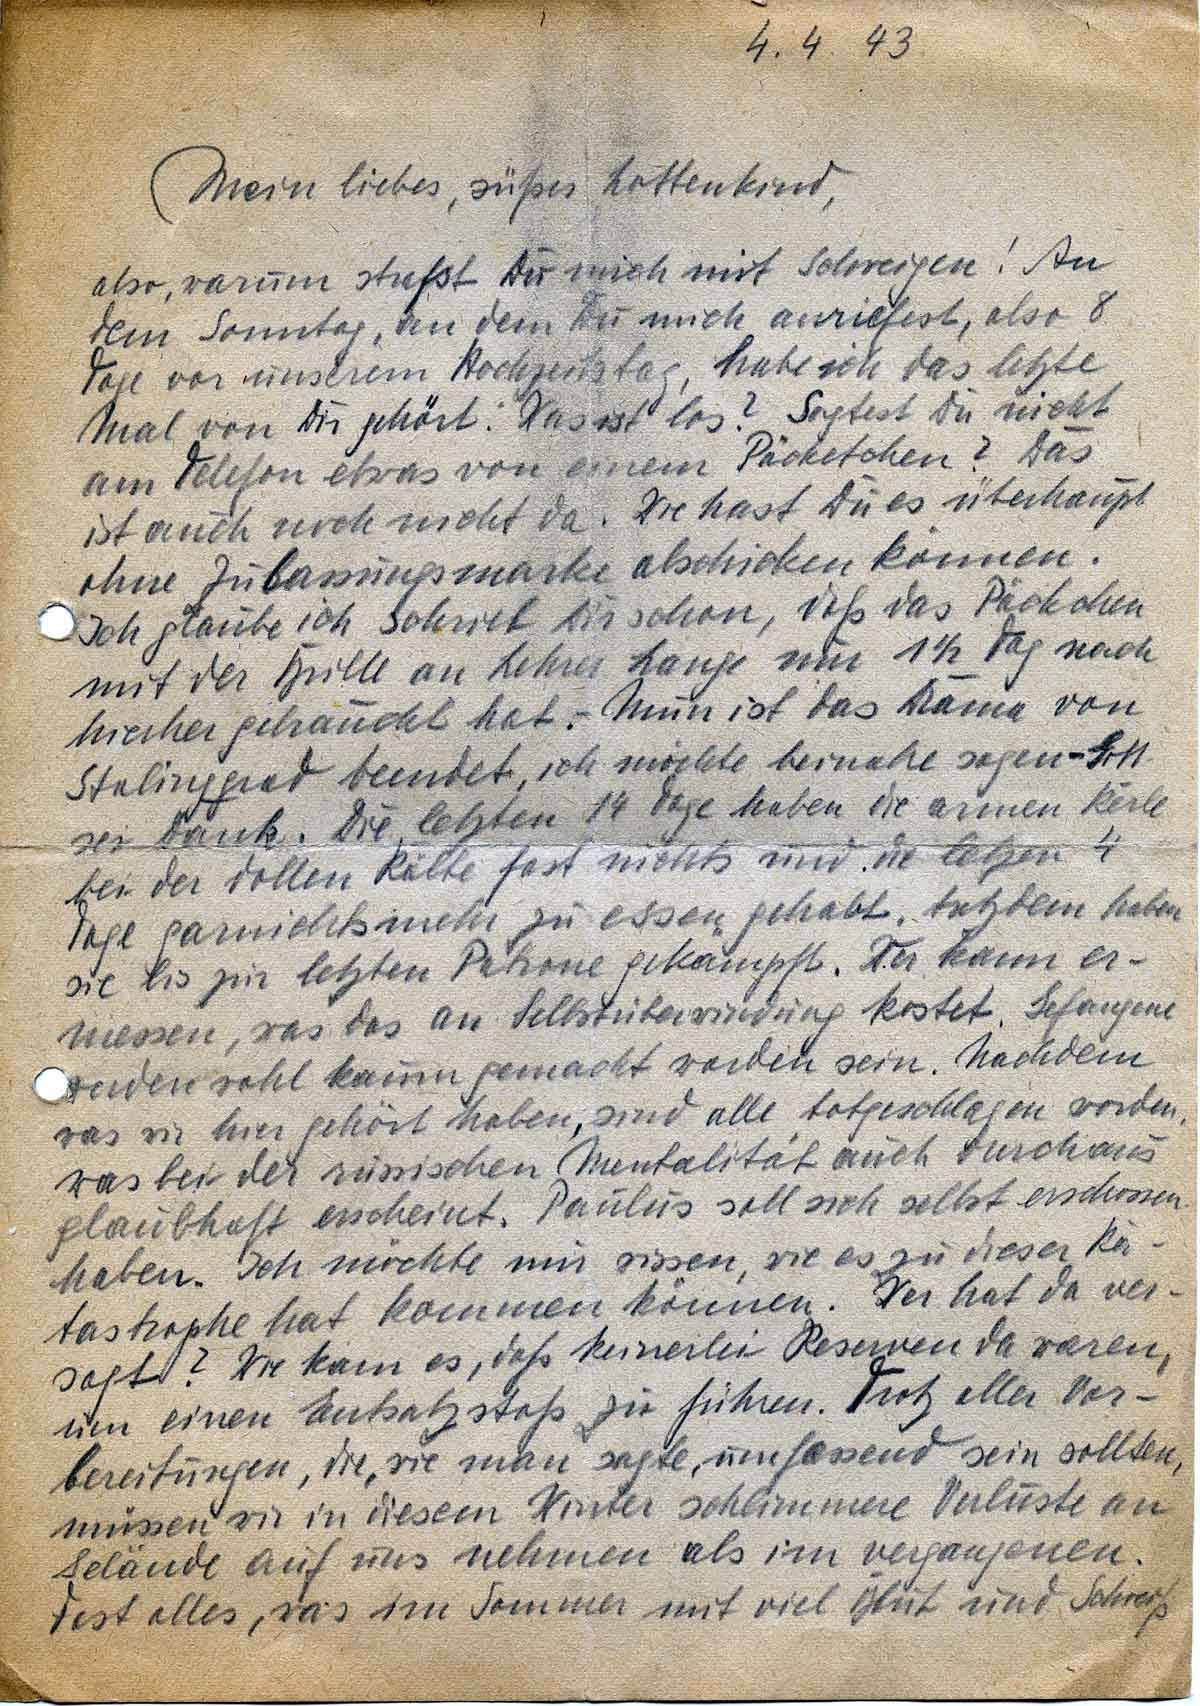 4. 4. 43
Mein liebes, süßes Lottenkind,
also, warum strafst Du mich mit Schweigen! An
dem Sonntag, an dem Du mich anriefest, also 8
Tage vor unserem Hochzeitstag, habe ich das letzte
Mal von Dir gehört. Was ist los? Sagtest Du nicht
am Telefon etwas von einem Päcketchen? Das
ist auch noch nicht da. Wie hast Du es überhaupt
ohne Zulassungsmarke abschicken können.
Ich glaube ich schrieb Dir schon, daß das Päckchen
mit der Brille an Lehrer Lange nur 1 1/2 Tag nach
hierher gebraucht hat.- Nun ist das Drama von
Stalinggrad beendet, ich möchte beinahe sagen - Gott
sei Dank. Die letzten 14 Tage haben die armen Kerle
bei der dollen Kälte fast nichts und die letzen 4
Tage garnichts mehr zu essen gehabt. Trotzdem haben
sie bis zur letzten Patrone gekämpft. Wer kann er-
messen, was das an Selbstüberwindung kostet. Gefangene
werden wohl kaum gemacht worden sein. Nachdem
was wir hier gehört haben, sind alle totgeschlagen worden,
was bei der russischen Mentalität auch durchaus
glaubhaft erscheint. Paulus soll sich selbst erschossen
haben. Ich möchte nur wissen, wie es zu dieser Ka-
tastrophe hat kommen können. Wer hat da ver-
sagt? Wie kam es, daß keinerlei Reserven da waren,
um einen Entsatzstoß zu führen. Trotz aller Vor-
bereitungen, die, wie man sagte, umfassend sein sollten,
müssen wir in diesem Winter schlimmere Verluste an
Gelände auf uns nehmen als im vergangenen.
Fast alles, was im Sommer mit viel Blut und Schweiß